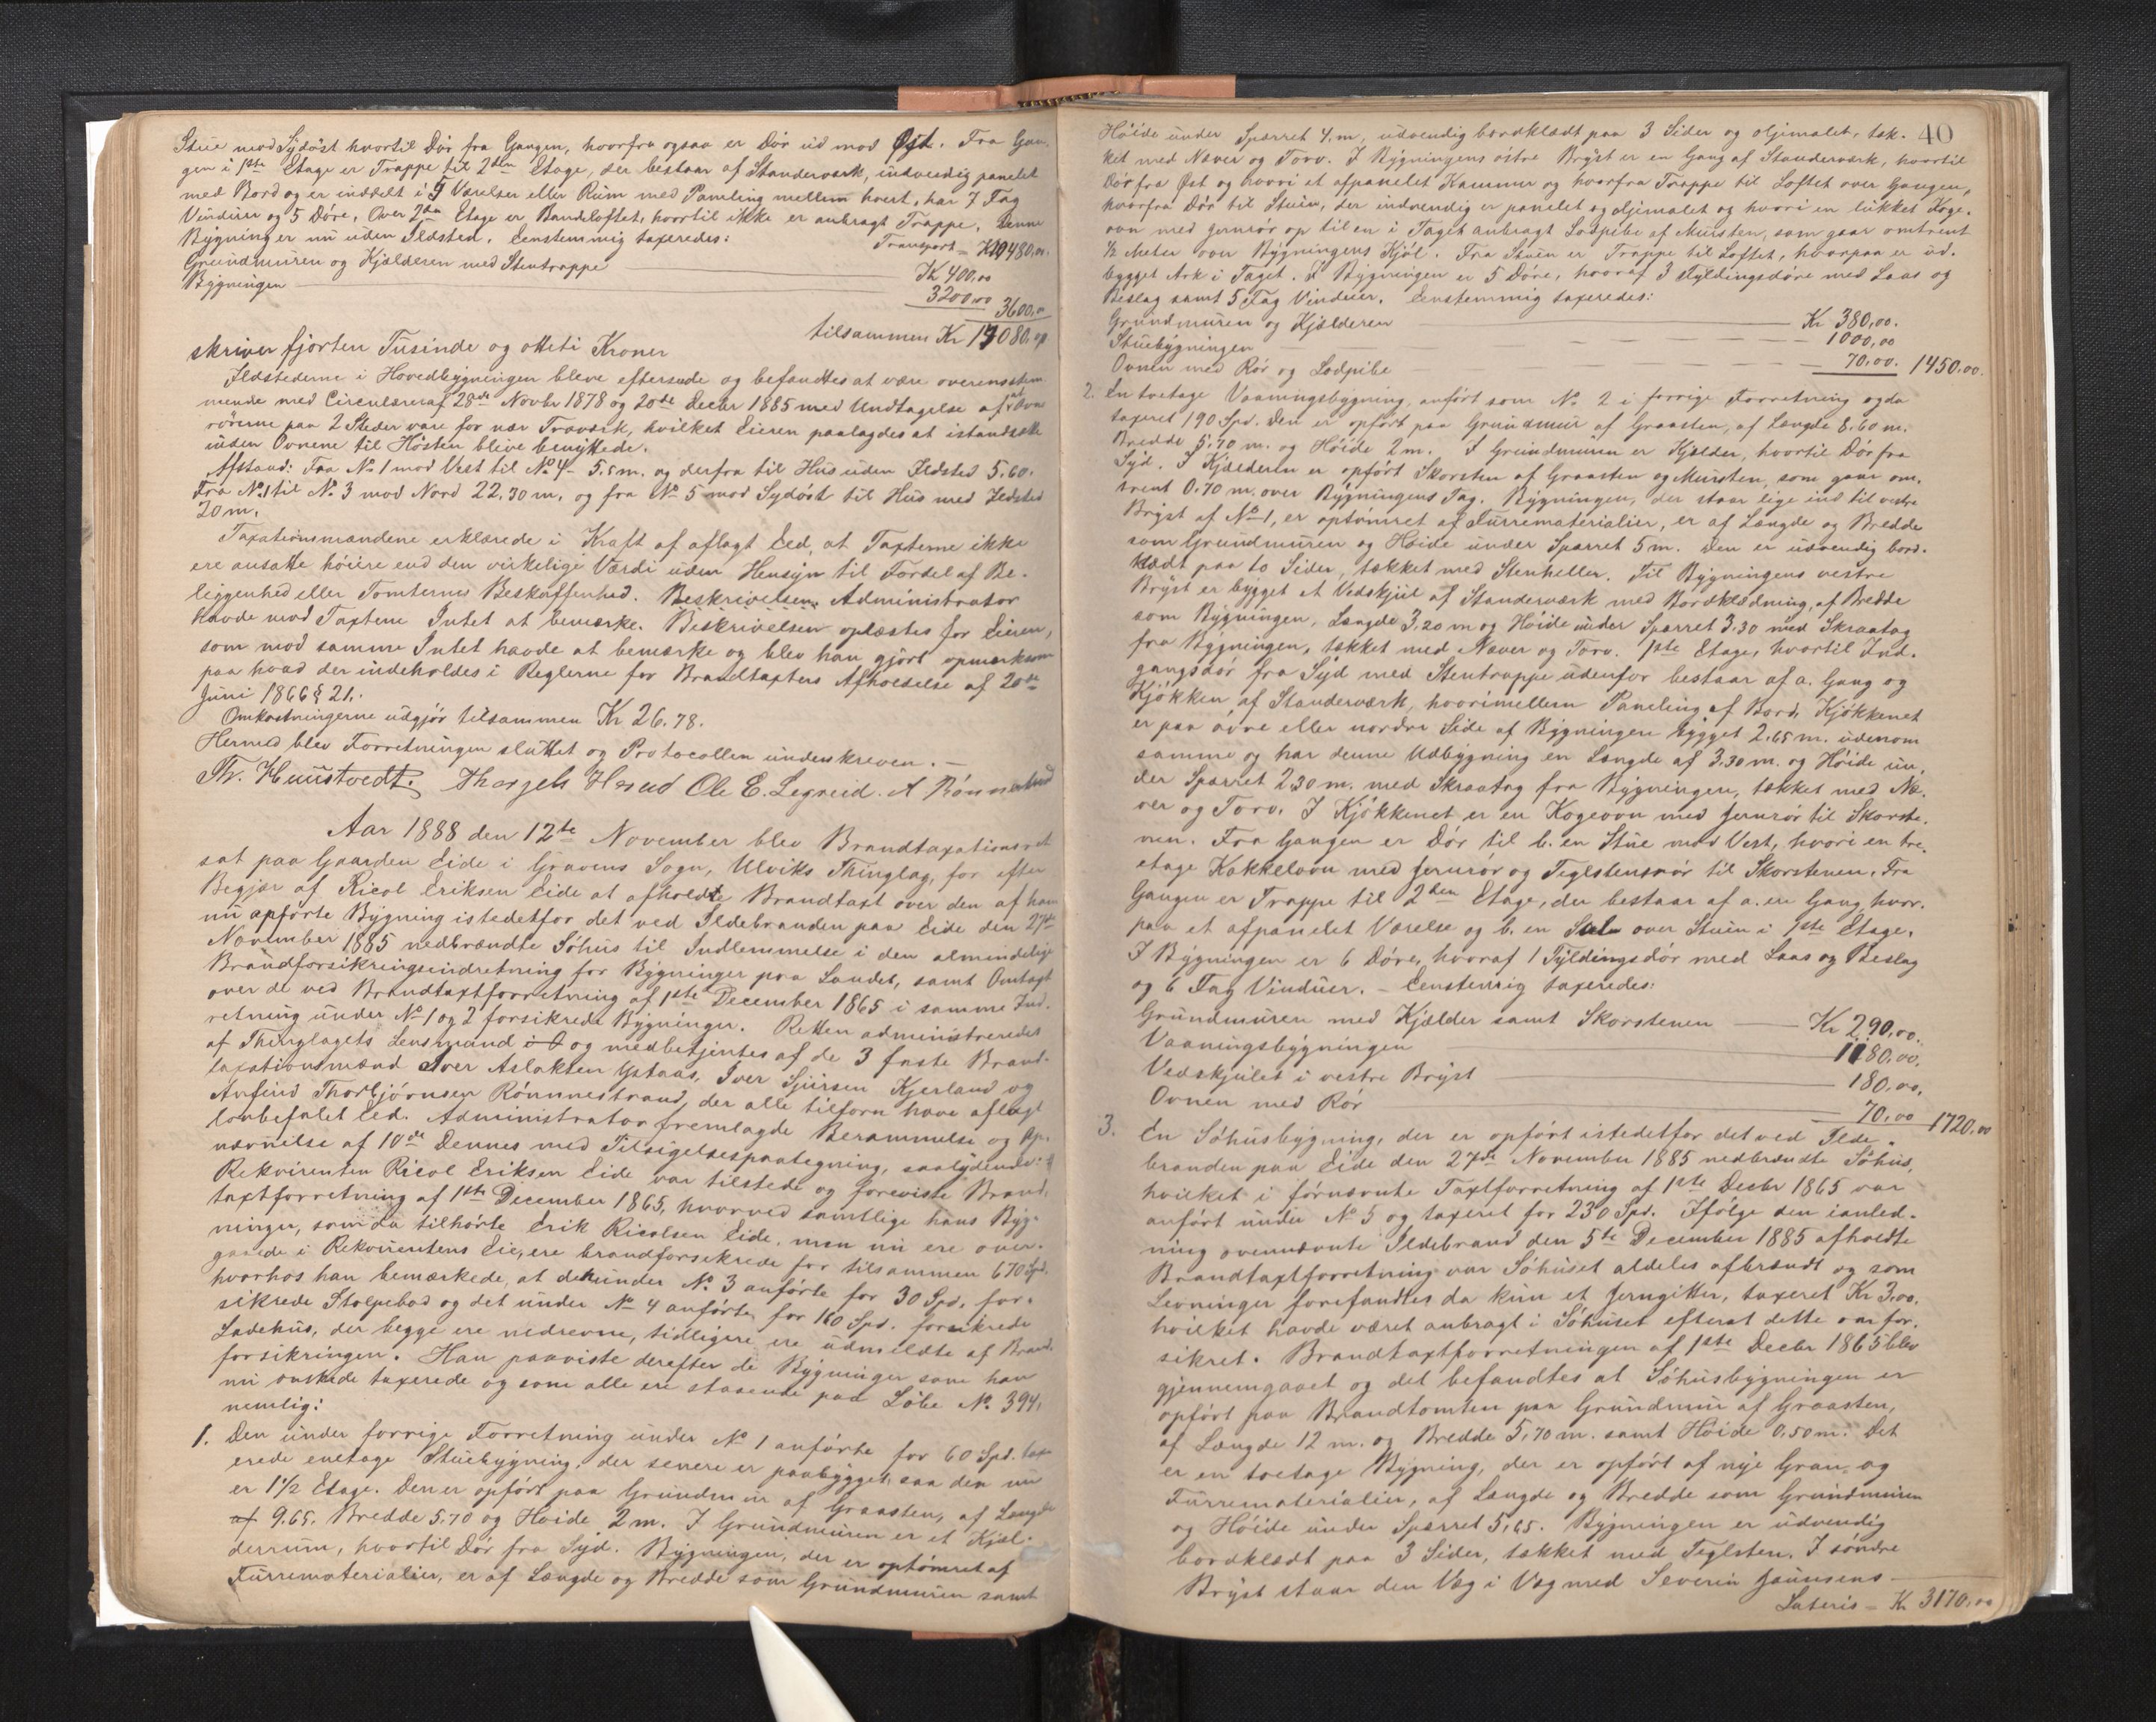 Stue mod Sydöst hvortil Dör fra Gangen, hvorfra ogsaa er Dör ud mod Øst. Fra Gan-
gen i 1ste Etage er Trappe til 2den Etage, der bestaar af Standerværk, indvendig panelet
med Bord og er inddelt i 5 Værelser eller Rum med Paneling mellem hvert, har 7 Fag
Vinduer og 5 Döre. Over 2den Etage er Bandloftet, hvortil ikke er anbragt Trappe. Denne
Bygning er nu uden Ildsted. Eenstemmig taxeredes:
Transport Kr 10480,00.
Grundmuren og Kjælderen med Stentrappe Kr 400,00
Bygningen 3200,00 3600,00
tilsammen Kr 14080,00
skriver fjorten Tusinde og otteti Kroner
Ildstederne i Hovedbygningen bleve efterseede og befandtes at være overensstem-
mende med Circulærer af 28de Novbr 1878 og 20de Decbr 1885 med Undtagelse af at Ovn
rörerne paa 2 Steder vare for nær Træværk, hvilket Eieren paalagdes at istandsætte
inden Ovnene til Hösten blive benyttede.
Afstand: Fra No 1 mod Vest til No 4 5,5 m. og derfra til Hus uden Ildsted 5,60.
Fra No 1 til No 3 mod Nord 22,30 m. og fra No 5 mod Sydöst til Hus med Ildsted
20 m.
Taxationsmændene erklærede i Kraft af aflagt Eed, at Taxterne ikke
ere ansatte höiere end den virkelige Værdi uden Hensyn til Fordel af Be-
liggenhed eller Tomternes Beskaffenhed. Beskrivelsen Administrator
havde mod Taxtene Intet at bemærke. Beskrivelsen oplæstes for Eieren,
som mod samme Intet havde at bemærke og blev han gjort opmærksom
paa hvad der indeholdes i Reglerne for Brandtaxters Afholdelse af 20de
Juni 1866 § 21.
Omkostningerne udgjör tilsammen Kr 26.78.
Hermed blev Forretningen sluttet og Protocollen underskreven. —
Th. Huustvedt. Ole E. Legreid. A Rönnestrand
Aar 1888 den 12te November blev Brandtaxationsret
sat paa Gaarden Eide i Gravens Sogn, Ulviks Thinglag, for efter
Begjær af Ricol Eriksen Eide at afholdte Brandtaxt over den af ham
nu opförte Bygning istedetfor det ved Ildebranden paa Eide den 27de
November 1885 nedbrændte Söhus til Indlemmelse i den almindelige
Brandforsikringsindretning for Bygninger paa Landet, samt Omtaxt
over de ved Brandtaxtforretning af 1ste December 1865 i samme Ind-
retning under No 1 og 2 forsikrede Bygninger. Retten administreredes
af Thinglagets Lensmand og medbetjentes af de 3 faste Brand-
taxationsmænd Iver Aslaksen Ystaas, Iver Sjursen Kjerland og
Anfind Thorbjörnsen Rönnestrand, der alle tilforn have aflagt
lovbefalet Eed. Administrator fremlagde Berammelse og Op-
nævnelse af 10de Dennes med Tilsigelsespaategning, saalydende:
Rekvirenten Ricol Eriksen Eide var tilstede og foreviste Brand-
taxtforretning af 1ste December 1865, hvorved samtlige hans Byg-
ninger, som da tilhörte Erik Ricolsen Eide, men nu ere over-
gaaede i Rekvirentens Eie, ere brandforsikrede for tilsammen 670 Spd.
hvorhos han bemærkede, at den under No 3 anförte for 30 Spd. for-
sikrede Stolpebod og det under No 4 anförte for 160 Spd. forsikrede
Ladehus, der begge ere nedrevne, tidligere ere udmeldte af Brand-
forsikringen. Han paaviste derefter de Bygninger som han
nu önskede taxerede og som alle ere staaende paa Löbe No. 394,
nemlig:
1. Den under forrige Forretning under No 1 anförte for 60 Spd. tax-
erede enetage Stuebygning, der senere er paabygget, saa den nu
er 1 1/2 Etage. Den er opfört paa Grundmur af Graasten, af Længde
af 9.65, Bredde 5,70 og Höide 2 m. I Grundmuren er et Kjæl-
derrum, hvortil Dör fra Syd. Bygningen, der er optömret af
Furrematerialier, er af Længde og Bredde som Grundmuren samt
40
Höide under Sparret 4 m, udvendig bordklædt paa 3 Sider og oljemalet, tæk-
ket med Næver og Torv. I Bygningens östre Bryst er en Gang af Standerværk, hvortil
Dör fra Øst og hvori et afpanelet Kammer og hvorfra Trappe til Loftet over Gangen,
hvorfra Dör til Stuen, der indvendig er panelet og oljemalet og hvori en lukket Koge-
ovn med Jernrör op til en i Taget anbragt Lodpibe af Mursten, som gaar omtrent
1/2 Meter over Bygningens Kjöl. Fra Stuen er Trappe til Loftet, hvorpaa er ud-
bygget Ark i Taget. I Bygningen er 5 Döre, hvoraf 3 Fyldingsdöre med Laas og
Beslag samt 5 Fag Vinduer. Eenstemmig taxeredes:
Grundmuren og Kjælderen Kr 380,00.
Stuebygningen 1000,00
Ovnen med Rör og Lodpibe 70,00. 1450,00.
2. En toetage Vaaningsbygning, anfört som No 2 i forrige Forretning og da
taxeret 190 Spd. Den er opfört paa Grundmur af Graasten, af Længde 8,60 m.
Bredde 5,70 m. og Höide 2 m. I Grundmuren er Kjælder, hvortil Dör fra
Syd. I Kjælderen er opfört Skorsten af Graasten og Mursten, som gaar om-
trent 0,70 m. over Bygningens Tag. Bygningen, der staar lige ind til vestre
Bryst af No 1, er optömret af Furrematerialier, er af Længde og Bredde
som Grundmuren og Höide under Sparret 5 m. Den er udvendig bord-
klædt paa to Sider, tækket med Stenheller. Til Bygningens vestre
Bryst er bygget et Vedskjul af Standerværk med Bordklædning, af Bredde
som Bygningen, Længde 3,20 m og Höide under Sparret 3,30 med Skraatag
fra Bygningen, tækket med Næver og Torv. 1ste Etage, hvortil Ind-
gangsdör fra Syd med Stentrappe udenfor bestaar af a. Gang og
Kjökken af Standerværk, hvorimellem Paneling af Bord. Kjökkenet
er paa övre eller nordre Side af Bygningen bygget 2,65 m. udenom
samme og har denne Udbygning en Længde af 3,30 m. og Höide un-
der Sparret 2,30 m. med Skraatag fra Bygningen, tækket med Næ-
ver og Torv. I Kjökkenet er en Kogeovn med Jernrör til Skorste-
nen. Fra Gangen er Dör til b. en Stue mod Vest, hvori en tre-
etage Kakkelovn med Jernrör og Teglstensrör til Skorstenen. Fra
Gangen er Trappe til 2den Etage, der bestaar af a. en Gang, hvor-
paa et afpanelet Værelse og b. en Sal over Stuen i 1ste Etage.
I Bygningen er 6 Döre, hvoraf 1 Fyldingsdör med Laas og Beslag
og 6 Fag Vinduer. — Eenstemmig taxeredes:
Grundmuren med Kjælder samt Skorstenen Kr 290,00.
Vaaningsbygningen 1180,00,
Vedskjulet i vestre Bryst 180,00,
Ovnen med Rör 70,00 1720,00
3. En Söhusbygning, der er opfört istedetfor det ved Ilde-
branden paa Eide den 27de November 1885 nedbrændte Söhus,
hvilket i förnævnte Taxtforretning af 1ste Decbr 1865 var
anfört under No 5 og taxeret for 230 Spd. Ifölge den i anled-
ning ovennævnte Ildebrand den 5te December 1885 afholdte
Brandtaxtforretning var Söhuset aldeles afbrændt og som
Levninger forefandtes da kun et Jerngitter, taxeret Kr 3,00,
hvilket havde været anbragt i Söhuset efterat dette var for-
sikret. Brandtaxtforretningen af 1ste Decbr 1865 blev
gjennemgaaet og det befandtes at Söhusbygningen er
opfört paa Brandtomten paa Grundmur af Graasten,
af Længde 12 m. og Bredde 5,70 m. samt Höide 0,50 m. Det
er en toetage Bygning, der er opfört af nye Gran- og
Furrematerialier, af Længde og Bredde som Grundmuren
og Höide under Sparret 5,65. Bygningen er udvendig
bordklædt paa 3 Sider, tækket med Teglsten. I söndre
Bryst staar den Væg i Væg med Severin Jaunsens
Lateris — Kr 3170,00